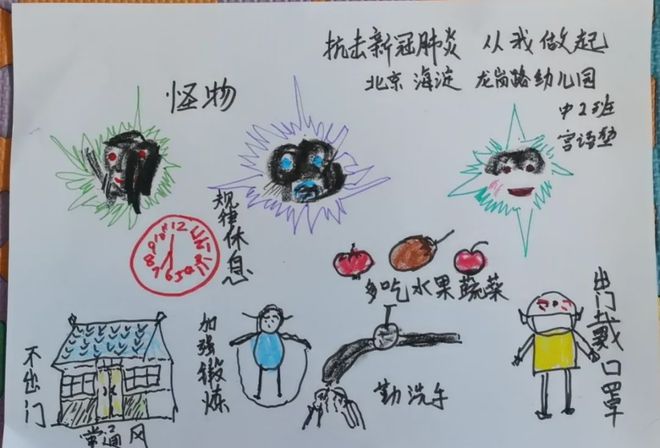 抗击新冠肺炎 从我做起
北京 海淀 龙岗路幼儿园
中2班
宫语
怪物
规律休息
12
多吃水果蔬菜
出门戴口罩
加强锻炼
勤洗手
不出门
常通风